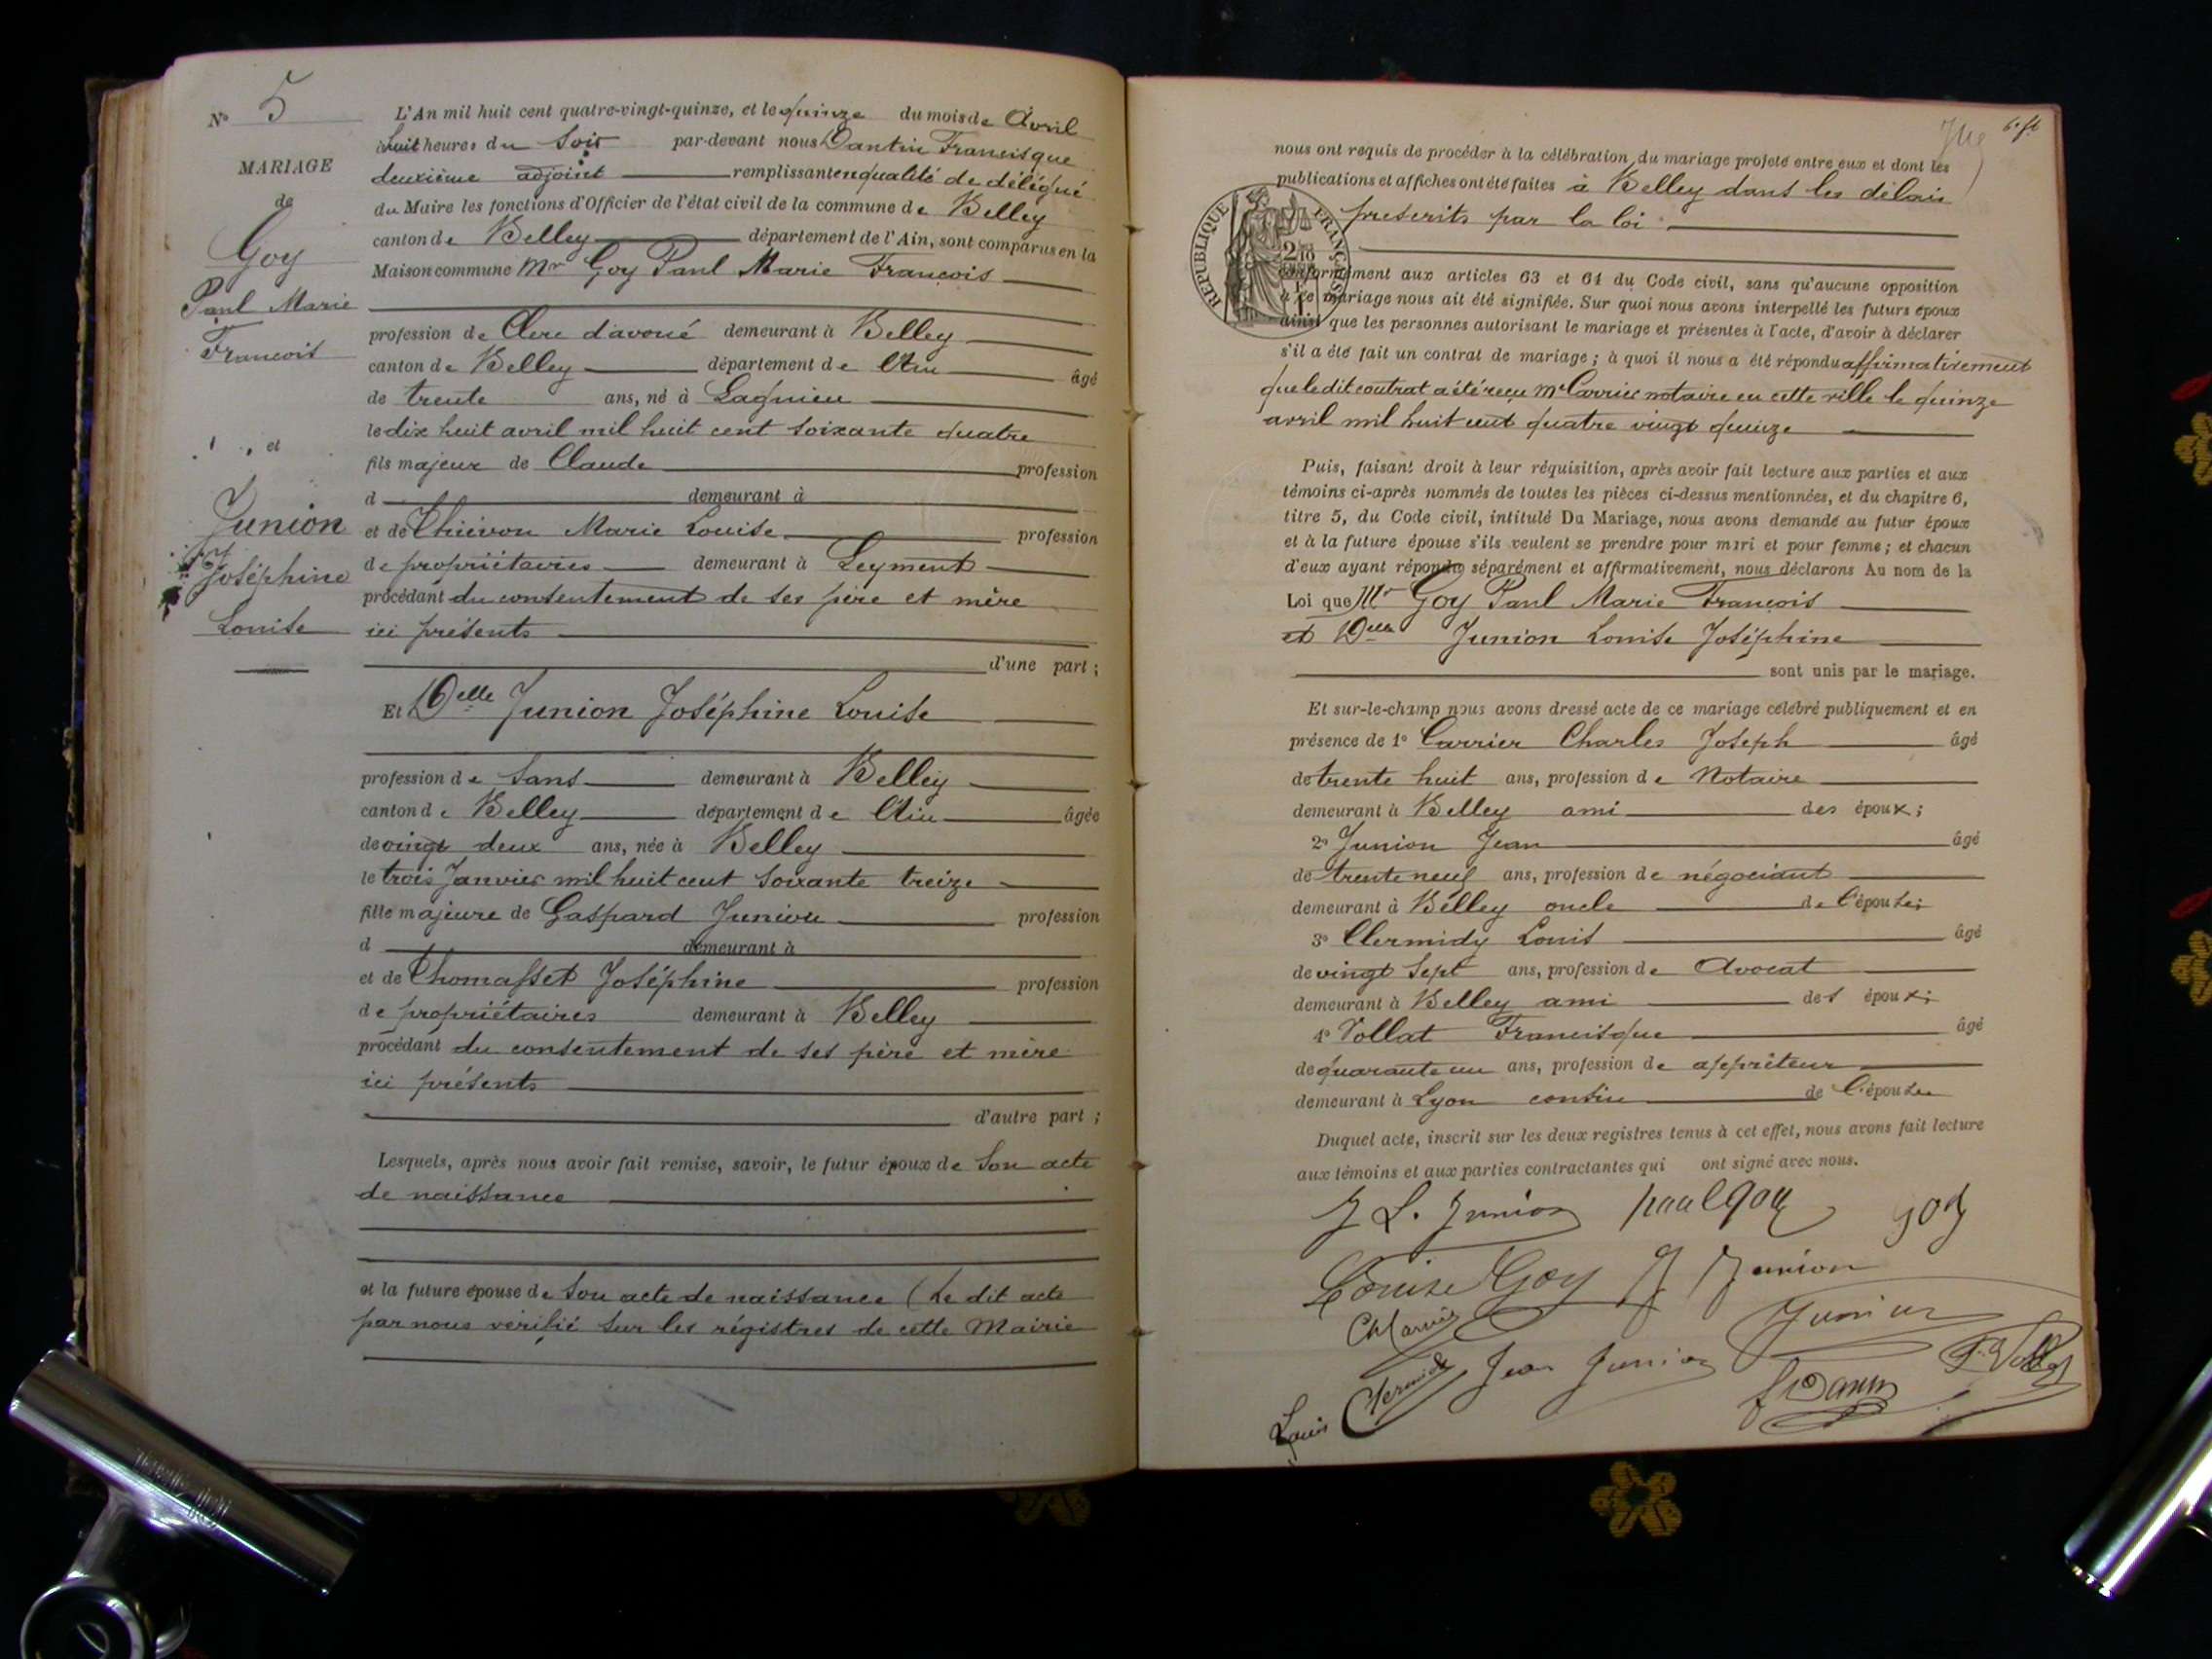 N° 5
MARIAGE
de
Goy
Paul Marie
François
et
Junion
Joséphine
Louise
L'An mil huit cent quatre-vingt-quinze, et le quinze du mois de Avril
à huit heures du Soir par-devant nous Dantin Francisque
deuxième adjoint remplissant en qualité de délégué
du Maire les fonctions d'Officier de l'état civil de la commune de Belley
canton de Belley département de l'Ain, sont comparus en la
Maison commune Mr Goy Paul Marie François
profession de Clerc d'avoué demeurant à Belley
canton de Belley département de l'Ain âgé
de trente ans, né à Lagnieu
le dix huit avril mil huit cent soixante quatre
fils majeur de Claude profession
d demeurant à
et de Thiévon Marie Louise profession
de propriétaires demeurant à Leyment
procédant du consentement de ses père et mère
ici présents
d'une part ;
Et Delle Junion Joséphine Louise
profession de Sans demeurant à Belley
canton de Belley département de l'Ain âgée
de vingt deux ans, née à Belley
le trois Janvier mil huit cent soixante treize
fille majeure de Gaspard Junion profession
d demeurant à
et de Thomasset Joséphine profession
de propriétaires demeurant à Belley
procédant du consentement de ses père et mère
ici présents
d'autre part ;
Lesquels, après nous avoir fait remise, savoir, le futur époux de Son acte
de naissance
et la future épouse de Son acte de naissance (Le dit acte
par nous vérifié sur les régistres de cette Mairie
nous ont requis de procéder à la célébration du mariage projeté entre eux et dont les
publications et affiches ont été faites à Belley dans les délais
prescrits par la loi
RÉPUBLIQUE FRANÇAISE
conformément aux articles 63 et 64 du Code civil, sans qu'aucune opposition
à ce mariage nous ait été signifiée. Sur quoi nous avons interpellé les futurs époux
ainsi que les personnes autorisant le mariage et présentes à l'acte, d'avoir à déclarer
s'il a été fait un contrat de mariage ; à quoi il nous a été répondu affirmativement
que le dit contrat a été reçu Me Carrier notaire en cette ville le quinze
avril mil huit cent quatre vingt quinze
Puis, faisant droit à leur réquisition, après avoir fait lecture aux parties et aux
témoins ci-après nommés de toutes les pièces ci-dessus mentionnées, et du chapitre 6,
titre 5, du Code civil, intitulé Du Mariage, nous avons demandé au futur époux
et à la future épouse s'ils veulent se prendre pour mari et pour femme ; et chacun
d'eux ayant répondu séparément et affirmativement, nous déclarons Au nom de la
Loi que Mr Goy Paul Marie François
et Delle Junion Louise Joséphine
sont unis par le mariage.
Et sur-le-champ nous avons dressé acte de ce mariage célébré publiquement et en
présence de 1° Carrier Charles Joseph âgé
de trente huit ans, profession de Notaire
demeurant à Belley ami des époux ;
2° Junion Jean âgé
de trente neuf ans, profession de négociant
demeurant à Belley oncle de l'épouse ;
3° Clermidy Louis âgé
de vingt sept ans, profession de Avocat
demeurant à Belley ami des époux ;
4° Vollat Francisque âgé
de quarante un ans, profession de apprêteur
demeurant à Lyon cousin de l'épouse
Duquel acte, inscrit sur les deux registres tenus à cet effet, nous avons fait lecture
aux témoins et aux parties contractantes qui ont signé avec nous.
J L. Junion Paul Goy goy
Louise Goy J Junion
Ch Carrier Junion
Louis Clermidy Jean Junion F. Dantin F. Vollat